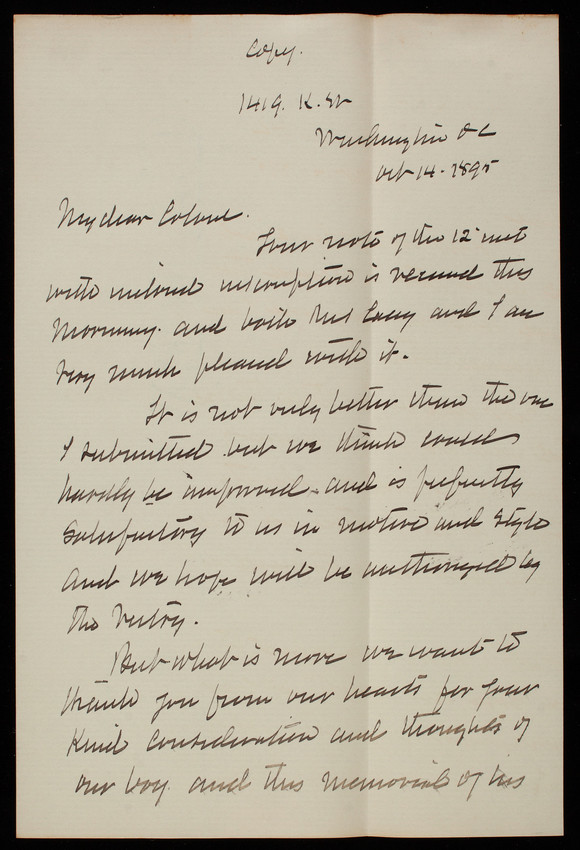 Copy.
1419. K. St
Washington DC
Oct 14. 1895
My dear Colonel.
Your note of the 12 inst
with inclosed inscription is received this
Morning. and both Mrs Casey and I are
very much pleased with it.
It is not only better than the one
I submitted but we think could
hardly be improved. and is perfectly
Satisfactory to us in motive and style
and we hope will be authorized by
the Vestry.
But what is more we want to
thank you from our hearts for your
Kind Consideration and thoughts of
our boy. and this memorial of his